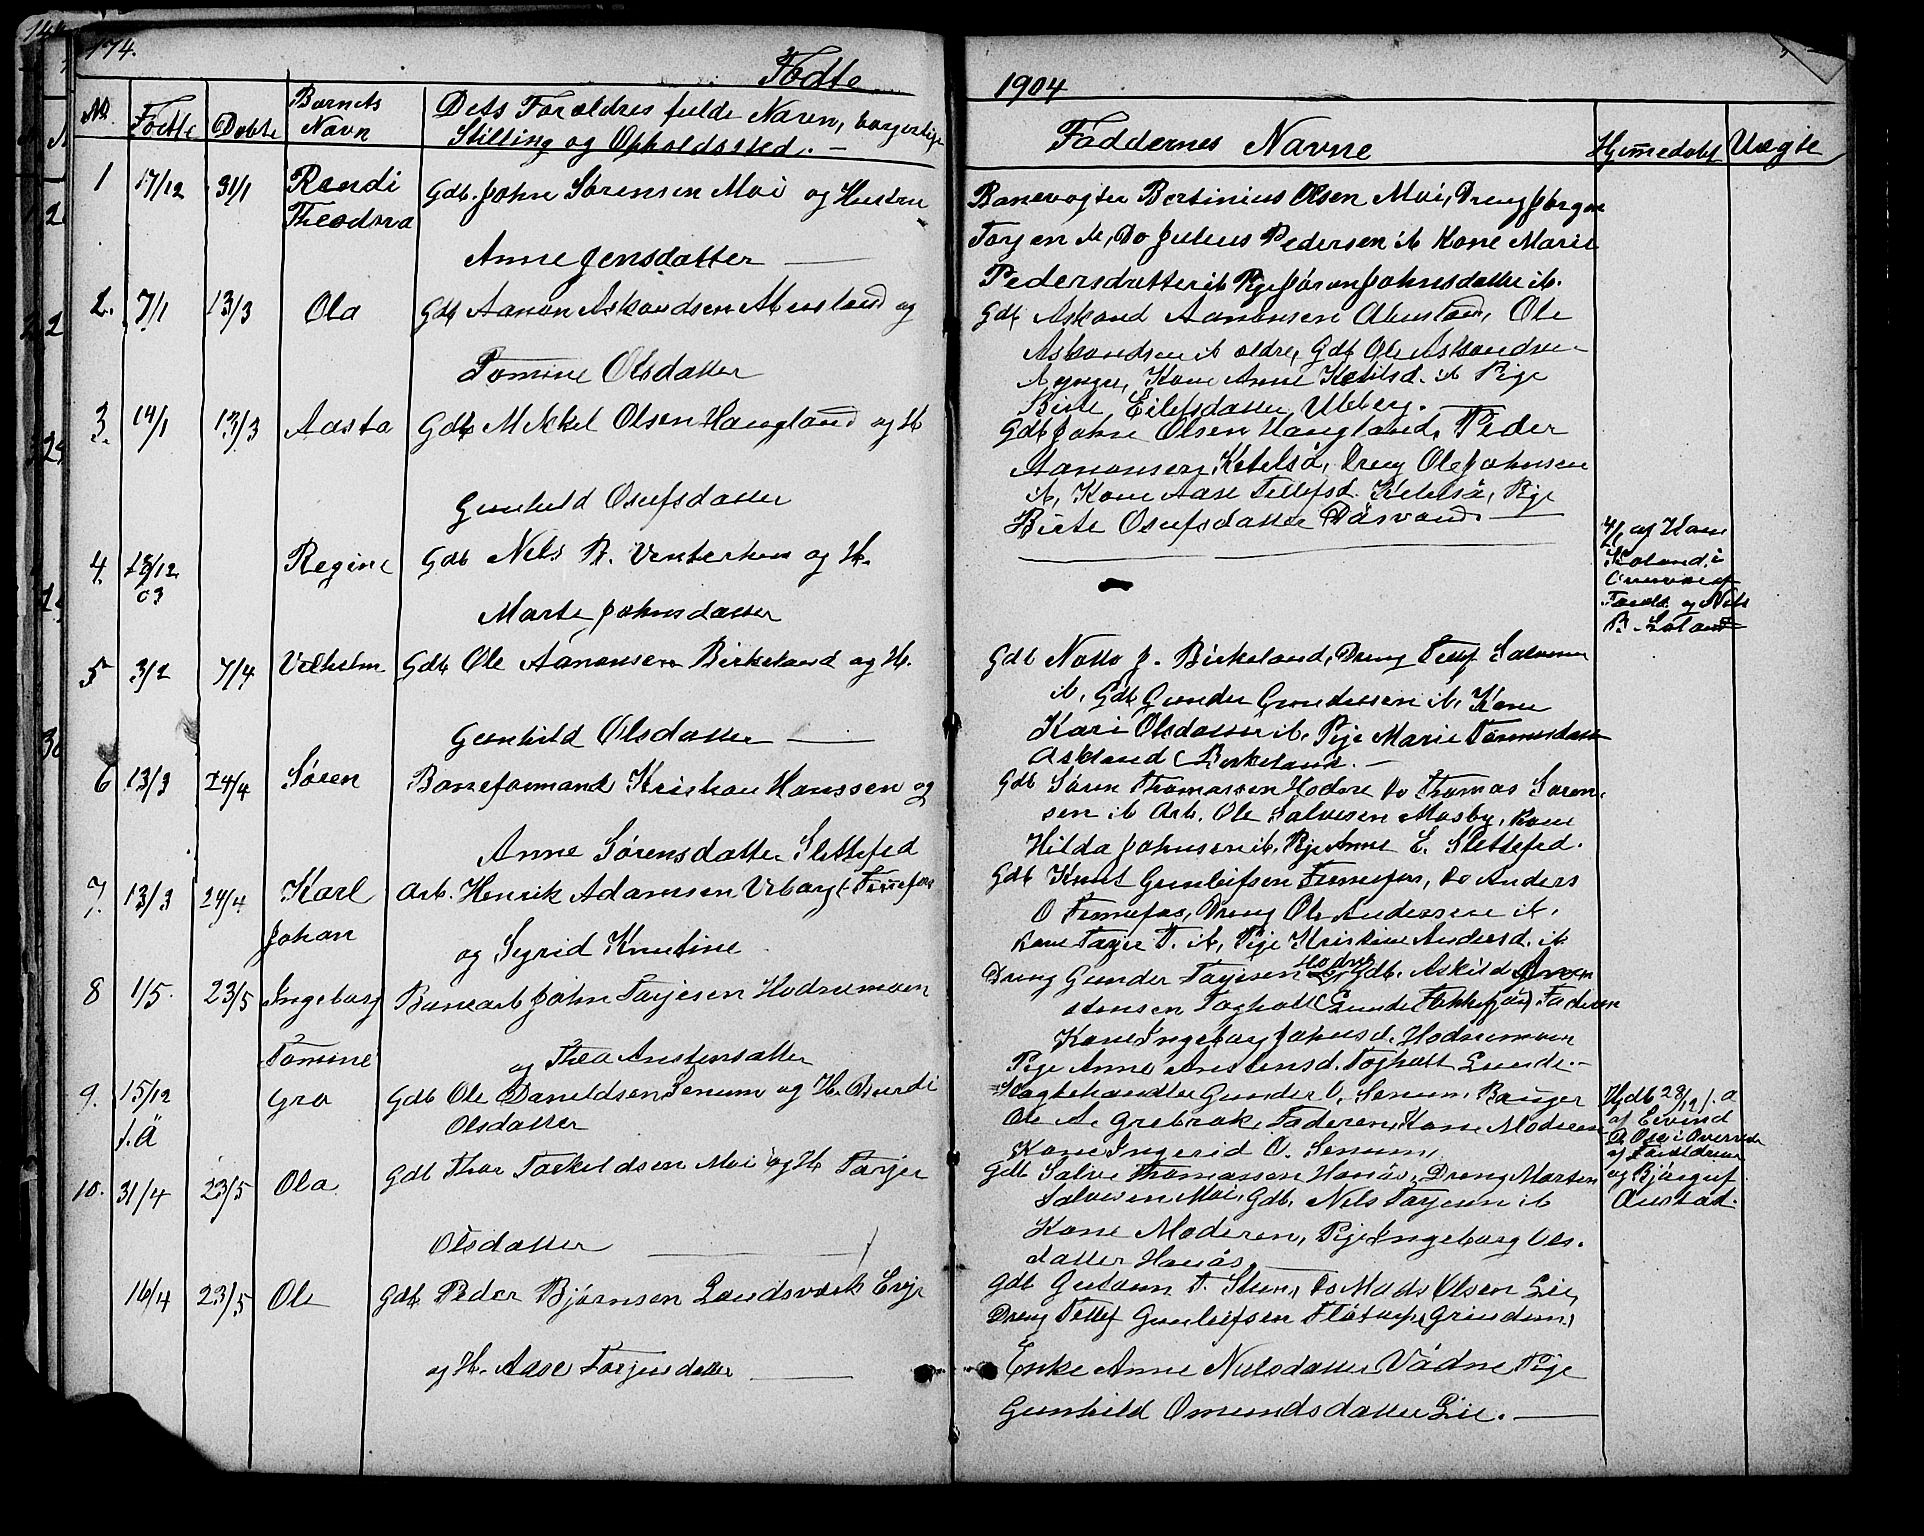 174.
Fødte
1904
No. Fødte Døbte Barnets Navn Dets Forældres fulde Navn, borgerlige
Stilling og Opholdssted. —
Faddernes Navne Hjemmedøbt Uægte
1 17/12 31/1 Randi Gdb. John Sørensen Moi og Hustru
Theodora
Anne Jensdatter —
Banevogter Bertinius Olsen Moi, Dreng Jørgen
Torjen M, Do Julius Pedersen ib Kone Marie
Pedersdatter ib Pige Jøran Johnsdatter ib.
2. 7/1 13/3 Ola Gdb Aanon Askoudsen Abusland og
Tomine Olsdatter
Gdb Askoud Aanonsen Abusland, Ole
Askoudsen ib ældre, Gdb Ole Askoudsen
yngre, Kone Anne Ketilsd. ib Pige
Birte Eilefsdatter Ubberg.
3. 14/1 13/3 Aasta Gdb Mikkel Olsen Haugland og H
Gunhild Osufsdatter
Gdb John Olsen Haugland, Peder
Aanonsen Ketelså, Dreng Ole Johnsen
ib, Kone Aase Tellefsd. Ketelså, Pige
Birte Osufsdatter Dåsvand. —
4. 18/12 03 Regine Gdb Nels R. Venterhun og H.
Marte Johnsdatter
4/1 af Hans
Loland i
Overvær af
Foreld. og Nils
R. Loland
5 3/2 7/4 Vilhelm Gdb Ole Aanonsen Birkeland og H.
Gunhild Olsdatter —
Gdb Notto J. Birkeland, Dreng Tellef Salvesen
ib, Gdb Gunder Gundersen ib, Kone
Kari Olsdatter ib, Pige Marie Tønnesdatter
Askland (Birkeland. —
6 13/3 24/4 Søren Baneformand Kristian Hanssen og
Anne Sørensdatter Slettefed
Gdb Søren Thomassen Hodne Do Thomas Søren-
sen ib Arb. Ole Salvesen Mosby, Kone
Hilda Johnsen ib, Pige Anne E. Slettefed.
7. 13/3 24/4 Karl Arb. Henrik Adamsen Viborg (Fennefos
Johan
og Sigrid Knutine
Gdb Knut Gunleifsen Fennefos, Do Anders
O Fennefos, Dreng Ole Anderssen ib,
Kone Torjer T. ib, Pige Kristine Andersd. ib
8 1/5. 23/5 Ingeborg Banearb John Torjesen Hodnemoen
Tomine
og Thea Anstensdatter
Dreng Gunder Torjesen Hodne Gdb. Askild Anun
stensen Fogholt (Lunde Faderen
Kone Ingeborg Johnsd. Hodnemoen
Pige Anne Anstensd. Fogholt Lunde. —
9. 15/12 f.å Gro Gdb Ole Danieldsen Senum og H. Gurdi
Olsdatter
Gunder O. Senum,
Ole A. Grebrok, Faderen, Kone Moderen
Kone Ingerid O. Senum,
Hjdb 28/12 f.å
af Eivind
O. Ose i Overvær
af Forældrene
og Bjørguf
Austad.
10. 31/4 23/5 Ola Gdb Thor Torkeldsen Moi og H Torjer
Olsdatter —
Gdb Salve Thomassen Honås, Dreng Morten
Salvesen Moi, Gdb. Nils Torjesen ib
Kone Moderen, Pige Ingeborg Ols-
datter Honås,
16/4 23/5 Ole Gdb Peder Bjørnsen Landsverk Evje
og H. Aase Torjusdatter —
Gdb Gutorm T. Do Mads Olsen Lie,
Dreng Tellef Gunleifsen Flåtorp (Grindem)
Enke Anne Nilsdatter Vådne Pige
Gunhild Omundsdatter Lie. —